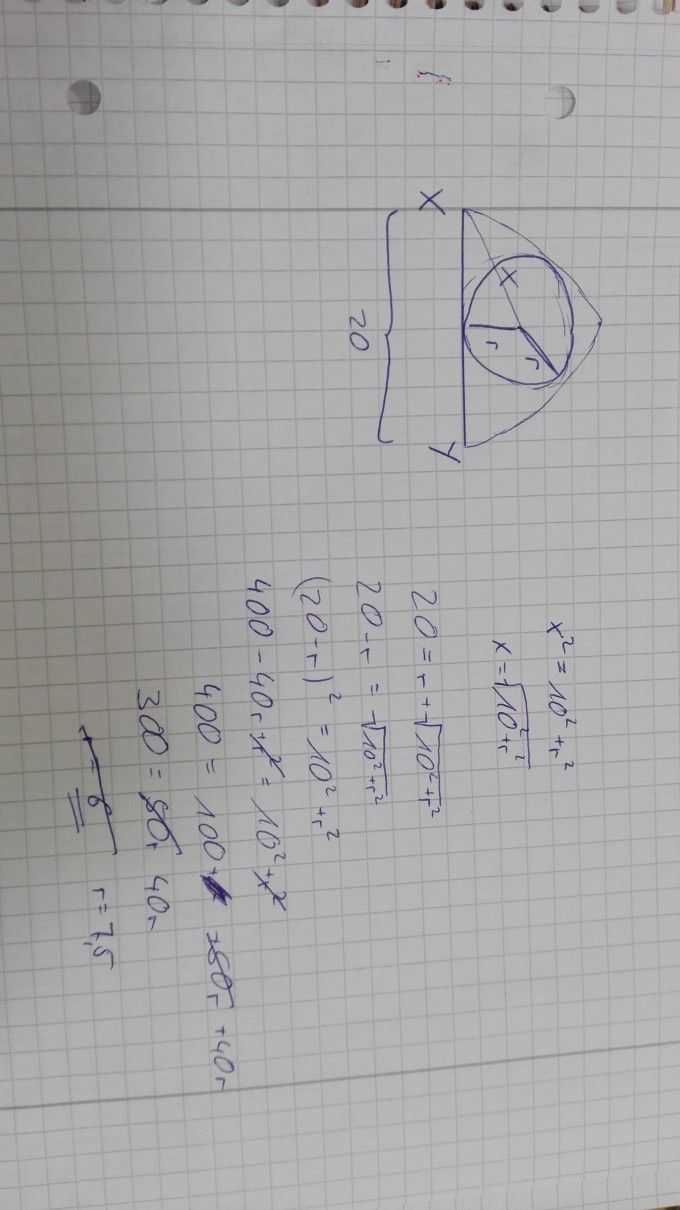 X
Y
20
x
r
r
x² = 10² + r²
x = √10² + r²
20 = r + √10² + r²
20 - r = √10² + r²
(20 - r)² = 10² + r²
400 - 40r + r² = 10² + r²
400 = 100 + 40r
300 = 40r
r = 7,5